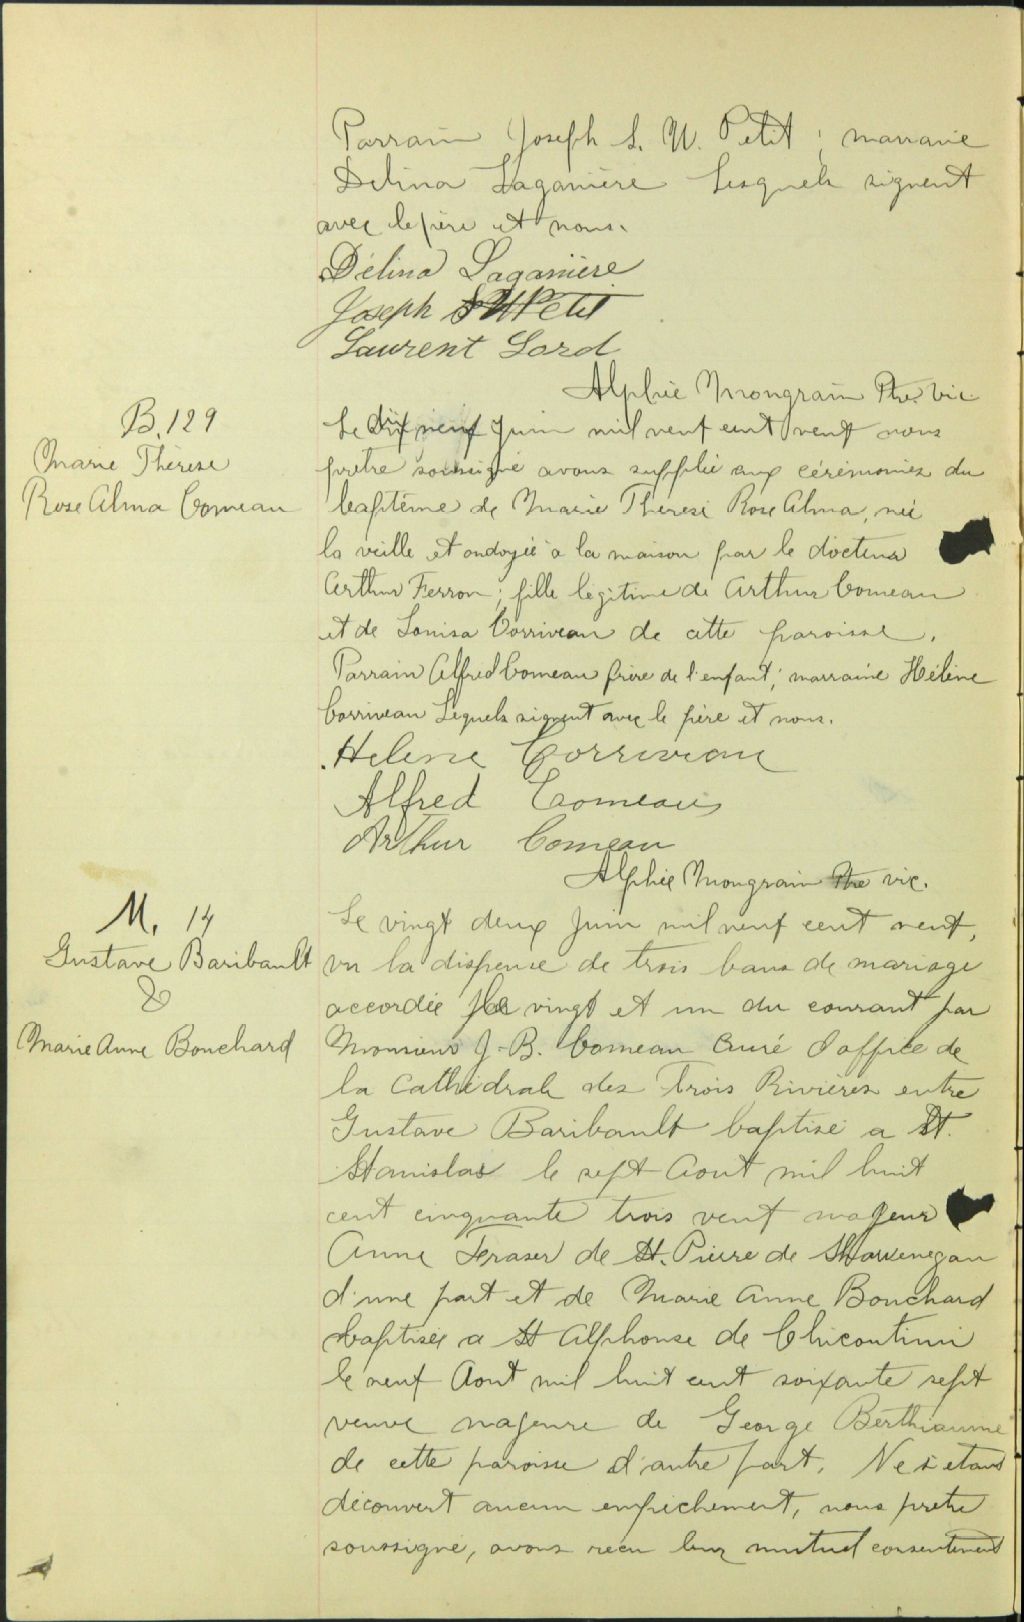 Parrain Joseph S. W. Petit ; marraine
Delina Laganière Lesquels signent
avec le père et nous.
Délina Laganière
Joseph S W Petit
Laurent Lord
Alphée Mongrain Ptre. vic.
B. 129
Marie Thérèse
Rose Alma Comeau
Le dix neuf Juin mil neuf cent neuf nous
prêtre soussigné avons supplié aux cérémonies du
baptême de Marie Therese Rose Alma, née
la veille et ondoyée a la maison par le docteur
Arthur Ferron ; fille légitime de Arthur Comeau
et de Louisa Corriveau de cette paroisse.
Parrain Alfred Comeau frère de l'enfant ; marraine Hélène
Corriveau Lequels signent avec le père et nous.
Helene Corriveau
Alfred Comeau
Arthur Comeau
Alphée Mongrain Ptre vic.
M. 14
Gustave Baribault
&
Marie Anne Bouchard
Le vingt deux Juin mil neuf cent neuf,
vu la dispense de trois bans de mariage
accordée le vingt et un du courant par
Monsieur J.-B. Comeau Curé d'office de
la Cathédrale des Trois Rivières entre
Gustave Baribault baptisé a St.
Stanislas le sept Aout mil huit
cent cinquante trois veuf majeur
Anne Fraser de St. Pierre de Shawenegan
d'une part et de Marie Anne Bouchard
baptisée a St Alphonse de Chicoutimi
le neuf Aout mil huit cent soixante sept
veuve majeure de George Berthiaume
de cette paroisse d'autre part. Ne s'étant
découvert aucun empêchement, nous prêtre
soussigné, avons reçu leur mutuel consentement